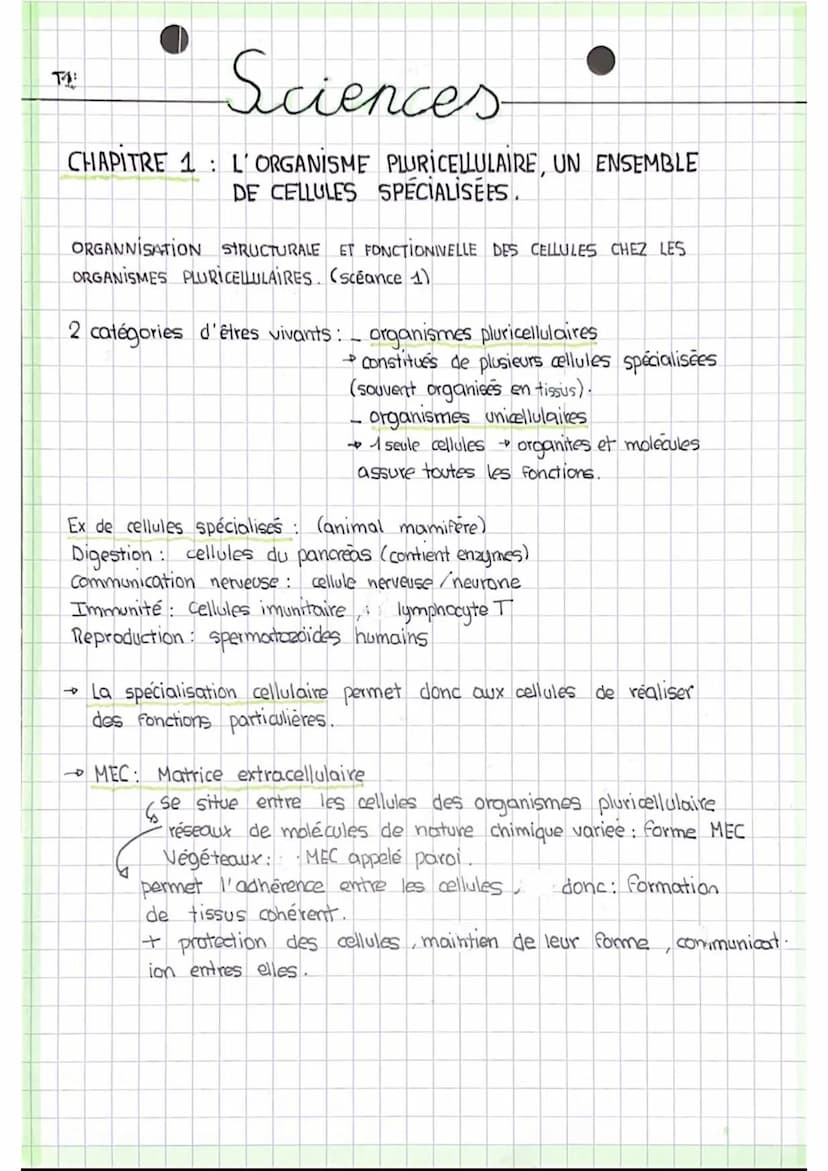 T1:
Sciences
CHAPITRE 1 : L'ORGANISME PLURICELLULAIRE, UN ENSEMBLE
DE CELLULES SPÉCIALISÉES.
ORGANNISATION STRUCTURALE ET FONCTIONNELLE DES CELLULES CHEZ LES
ORGANISMES PLURICELLULAIRES. (scéance 1)
2 catégories d'êtres vivants : - organismes pluricellulaires
→ constitués de plusieurs cellules spécialisées
(souvent organisés en tissus).
- organismes unicellulaires
→ 1 seule cellules → organites et molécules
assure toutes les fonctions.
Ex de cellules spécialisés : (animal mamifère)
Digestion : cellules du pancréas (contient enzymes)
Communication nerveuse : cellule nerveuse / neurone
Immunité : Cellules imunitaire , : lymphocyte T
Reproduction : spermatozoïdes humains
→ La spécialisation cellulaire permet donc aux cellules de réaliser
des fonctions particulières.
→ MEC : Matrice extracellulaire
se situe entre les cellules des organismes pluricellulaire
réseaux de molécules de nature chimique variée : forme MEC
Végéteaux : MEC appelé paroi.
permet l'adhérence entre les cellules , donc : formation
de tissus cohérent.
+ protection des cellules , maintien de leur forme , communicat-
ion entres elles.